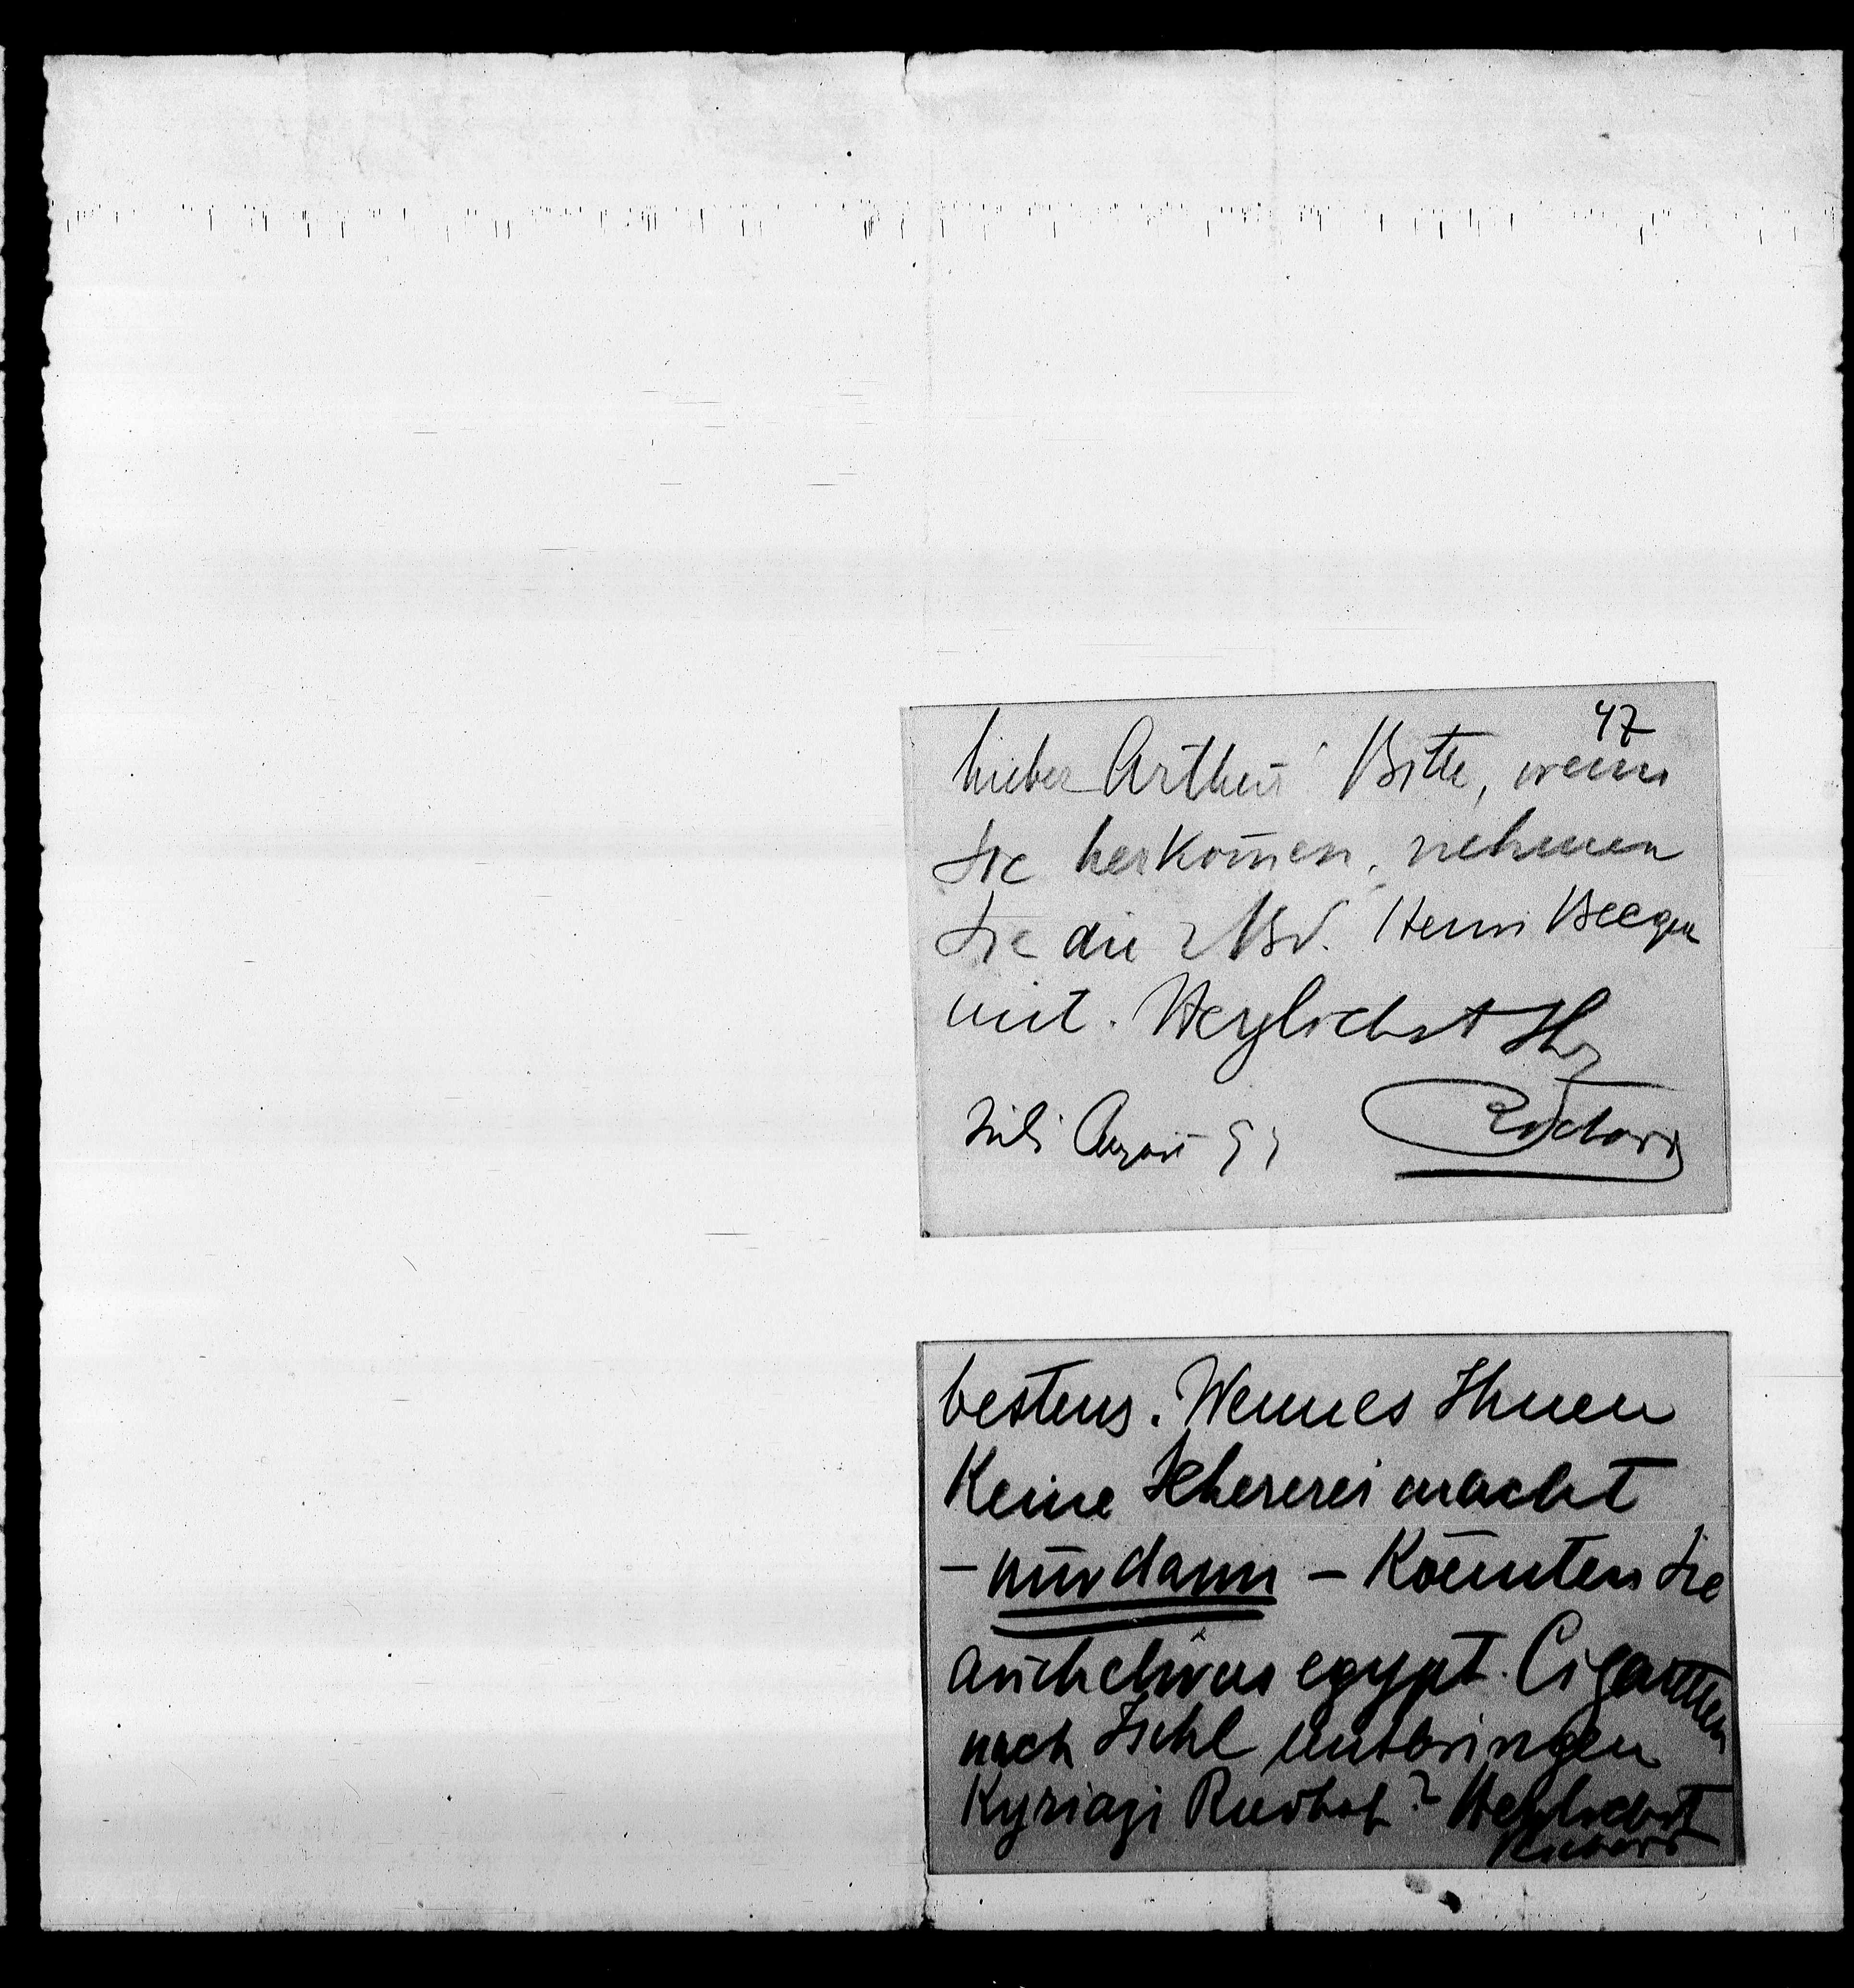 47
Lieber Arthur! Bitte, wenn
Sie herkom̄en, nehmen
Sie die 2 Bd. Henri Becque
mit. Herzlichst Ihr
Richard
Juli August 91
bestens. Wenn es Ihnen
Keine Schererei macht
– nur dann – Könnten Sie
auch etwas egypt. Cigaretten
nach Ischl mitbringen
Kyriazi Riedhof? Herzlichst
Richard